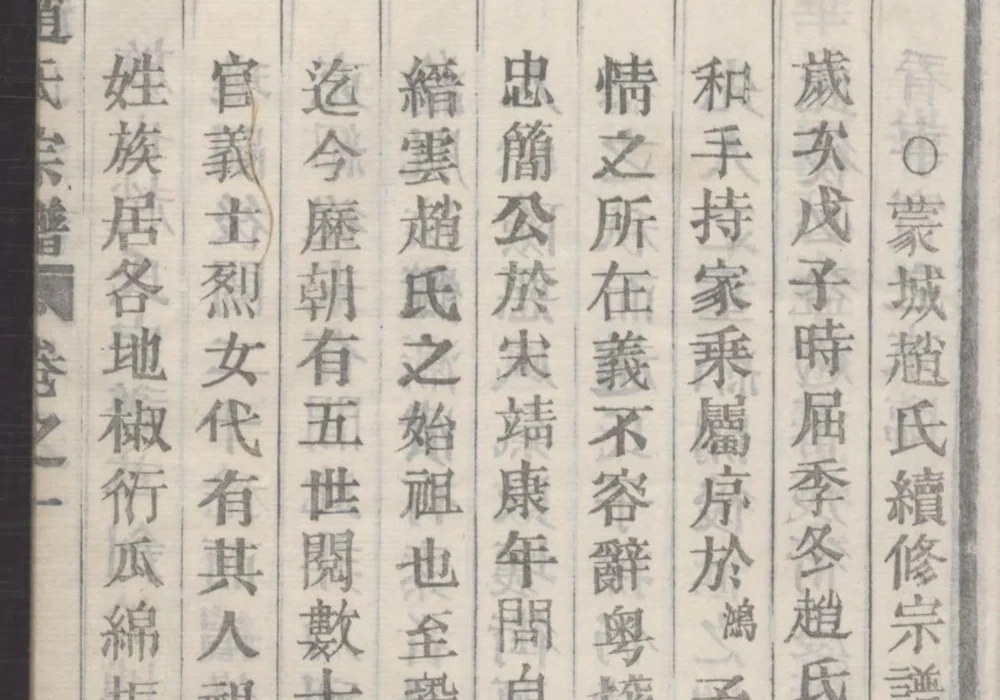 ○蒙城趙氏續修宗譜
歲次戊子時屆季冬趙氏
和手持家乗屬序於鴻
情之所在義不容辭粤
忠簡公於宋靖康年間自
縉雲趙氏之始祖也至
迄今歷朝有五世閱數十
官義士烈女代有其人
姓族居各地椒衍瓜綿
趙氏宗譜 卷之一